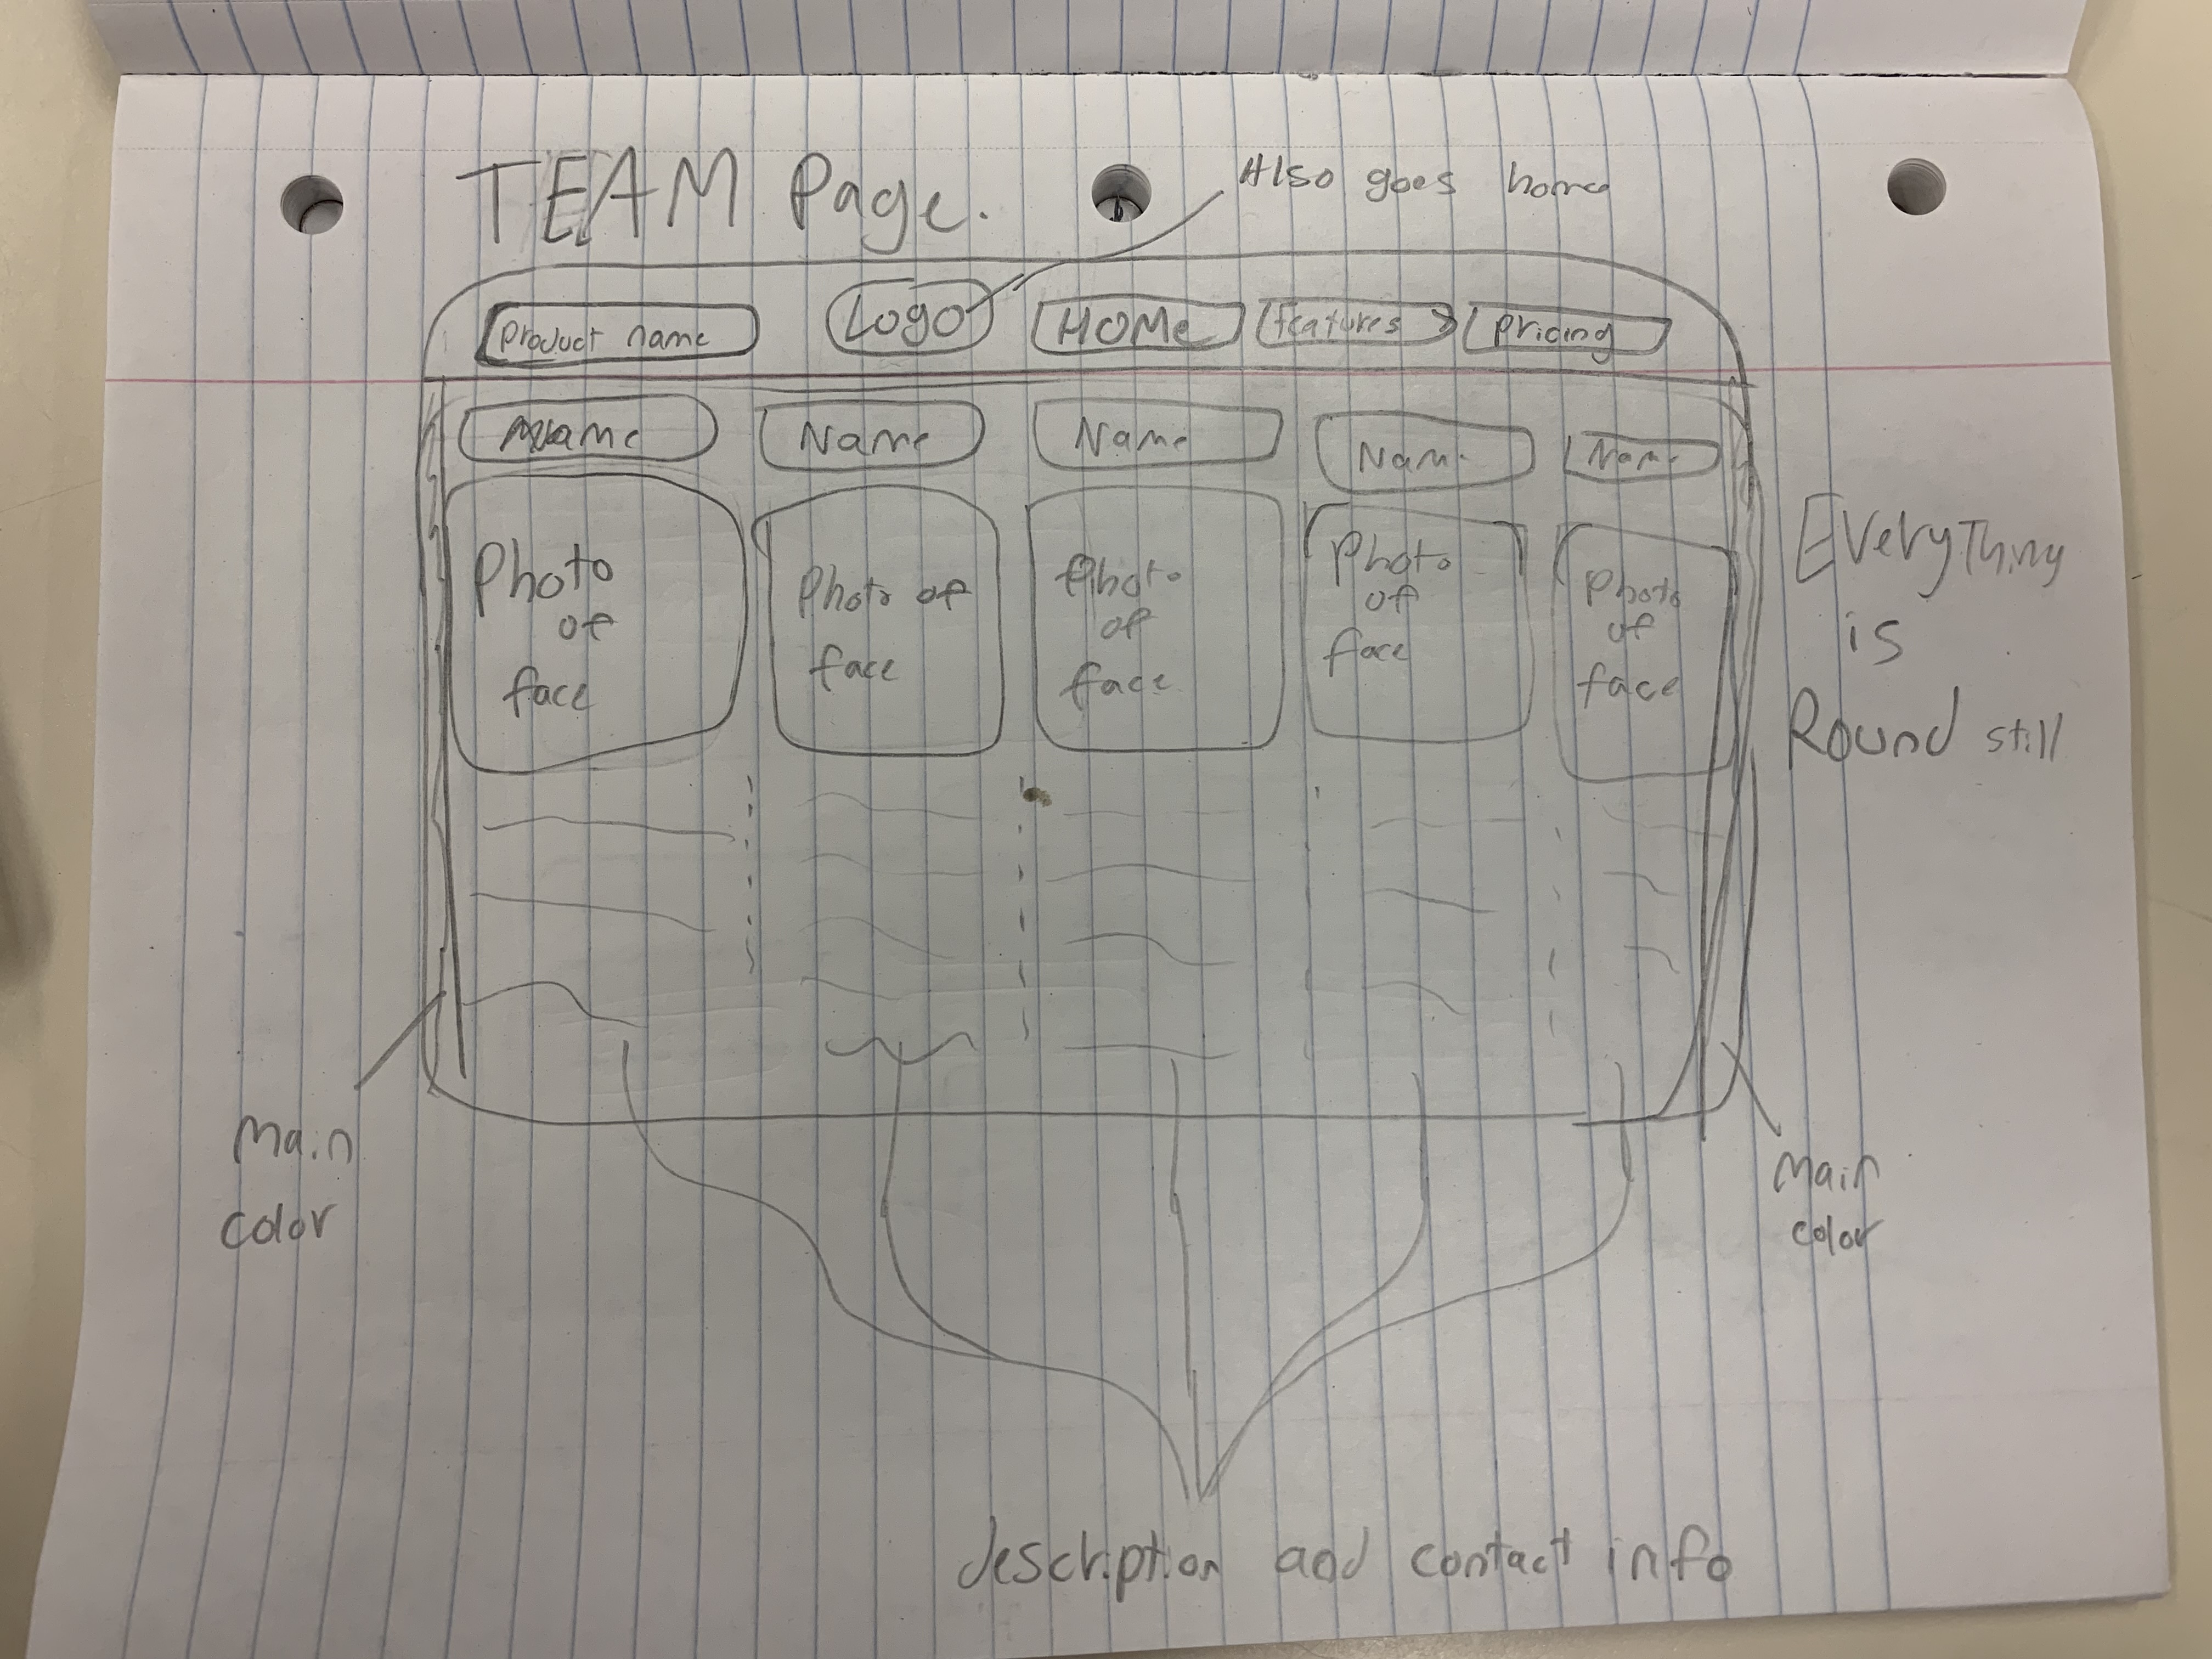 TEAM Page.
Also goes home
Product name
Logo
HOMe
features
Pricing
Name
Name
Name
Nam
Name
Photo
of
face
Photo of
face
Photo
of
face
Photo
of
face
Photo
of
face
EveryThing
is
Round still
Main
color
Main
color
description and contact info